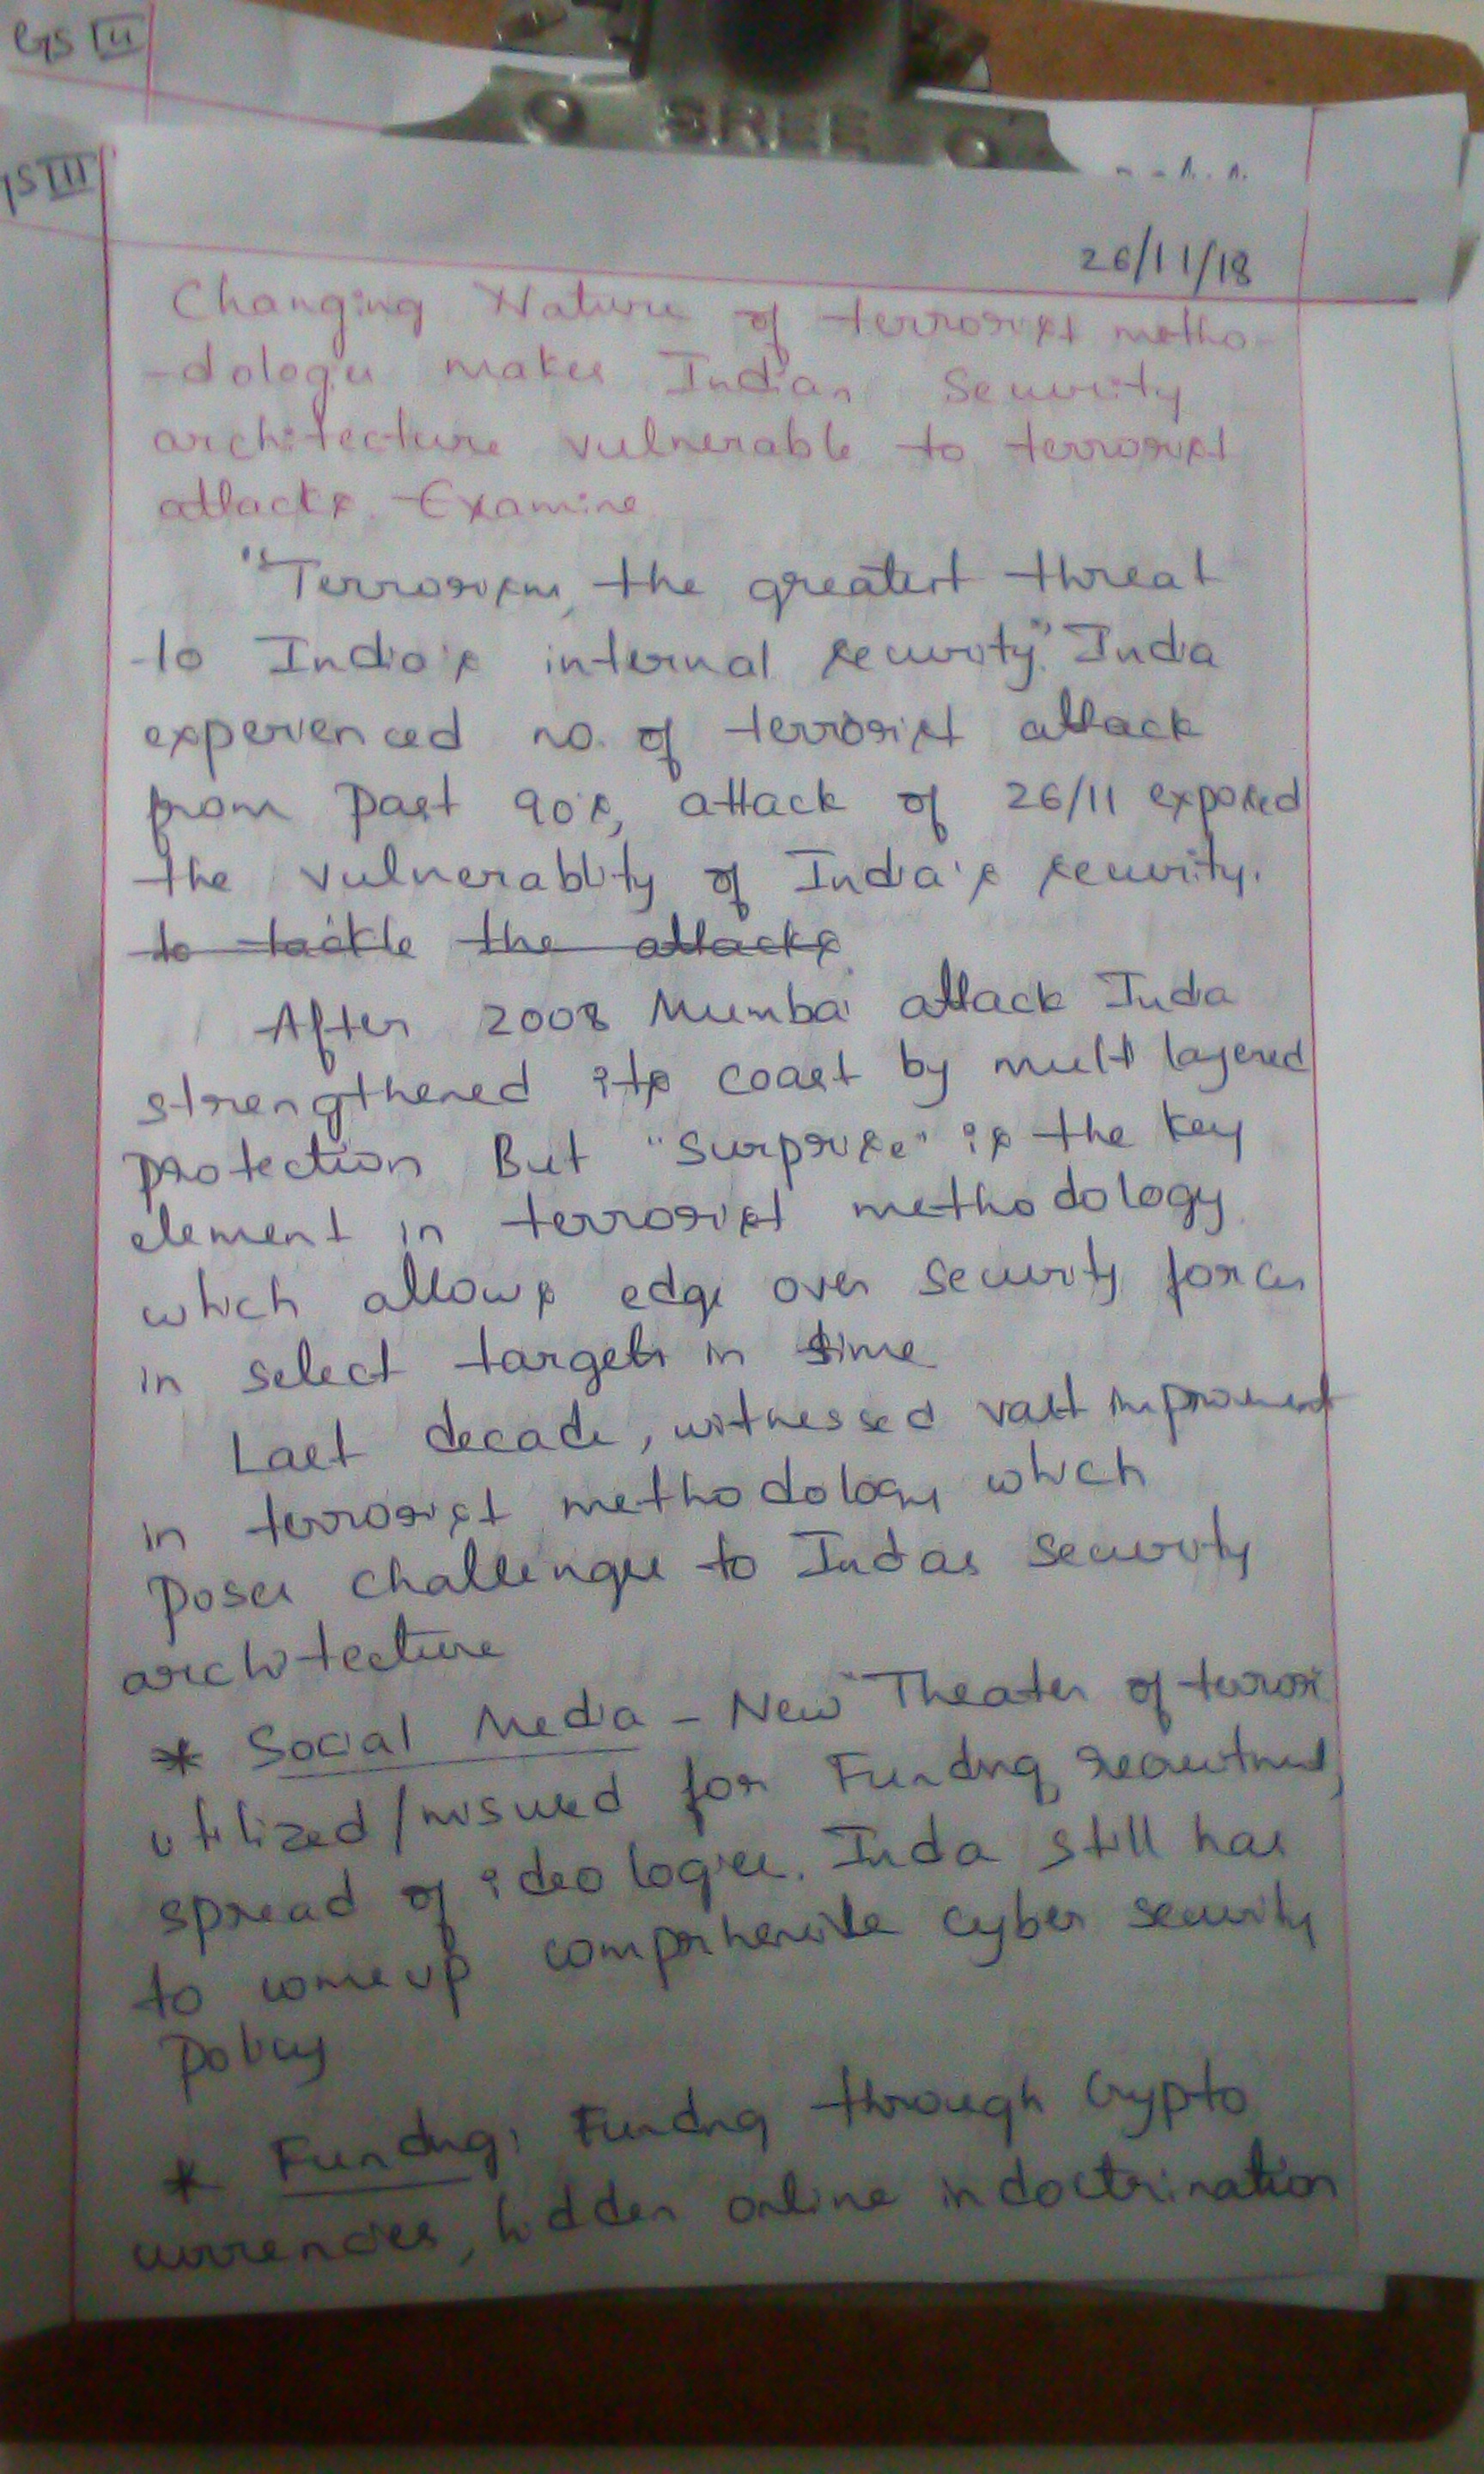 GS II
SREE
GS III
26/11/18
Changing Nature of terrorist metho-
-dologies makes Indian Security
architecture vulnerable to terrorist
attacks. Examine
"Terrorism, the greatest threat
to India's internal security." India
experienced no. of terrorist attack
from past 90's, attack of 26/11 exposed
the vulnerablity of India's security.
to tackle the attacks
After 2008 Mumbai attack India
strengthened its coast by multi layered
protection But "Surprise" is the key
element in terrorist methodology
which allows edge over security forces
in select targets in time
Last decade, witnessed vast improvement
in terrorist methodology which
poses challenges to Indias security
architecture
* Social Media - New "Theater of terror
utilized/misused for Funding, recruitment,
spread of ideologies. India still has
to come up comprehensive cyber security
policy
* Funding: Funding through Crypto
currencies, hidden online indoctrination